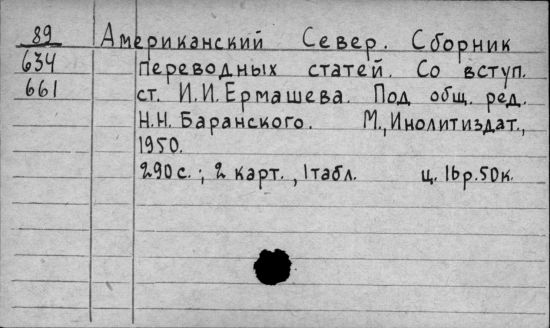 89 Американский Север. Сборник
634 переводных статей. Со вступ.
661 ст. И.И.Ермашева. Под общ. ред.
Н.Н. Баранского. М., Инолитиздат.,
1950.
290с.; 2 карт., 1табл. ц. 16р.50к.